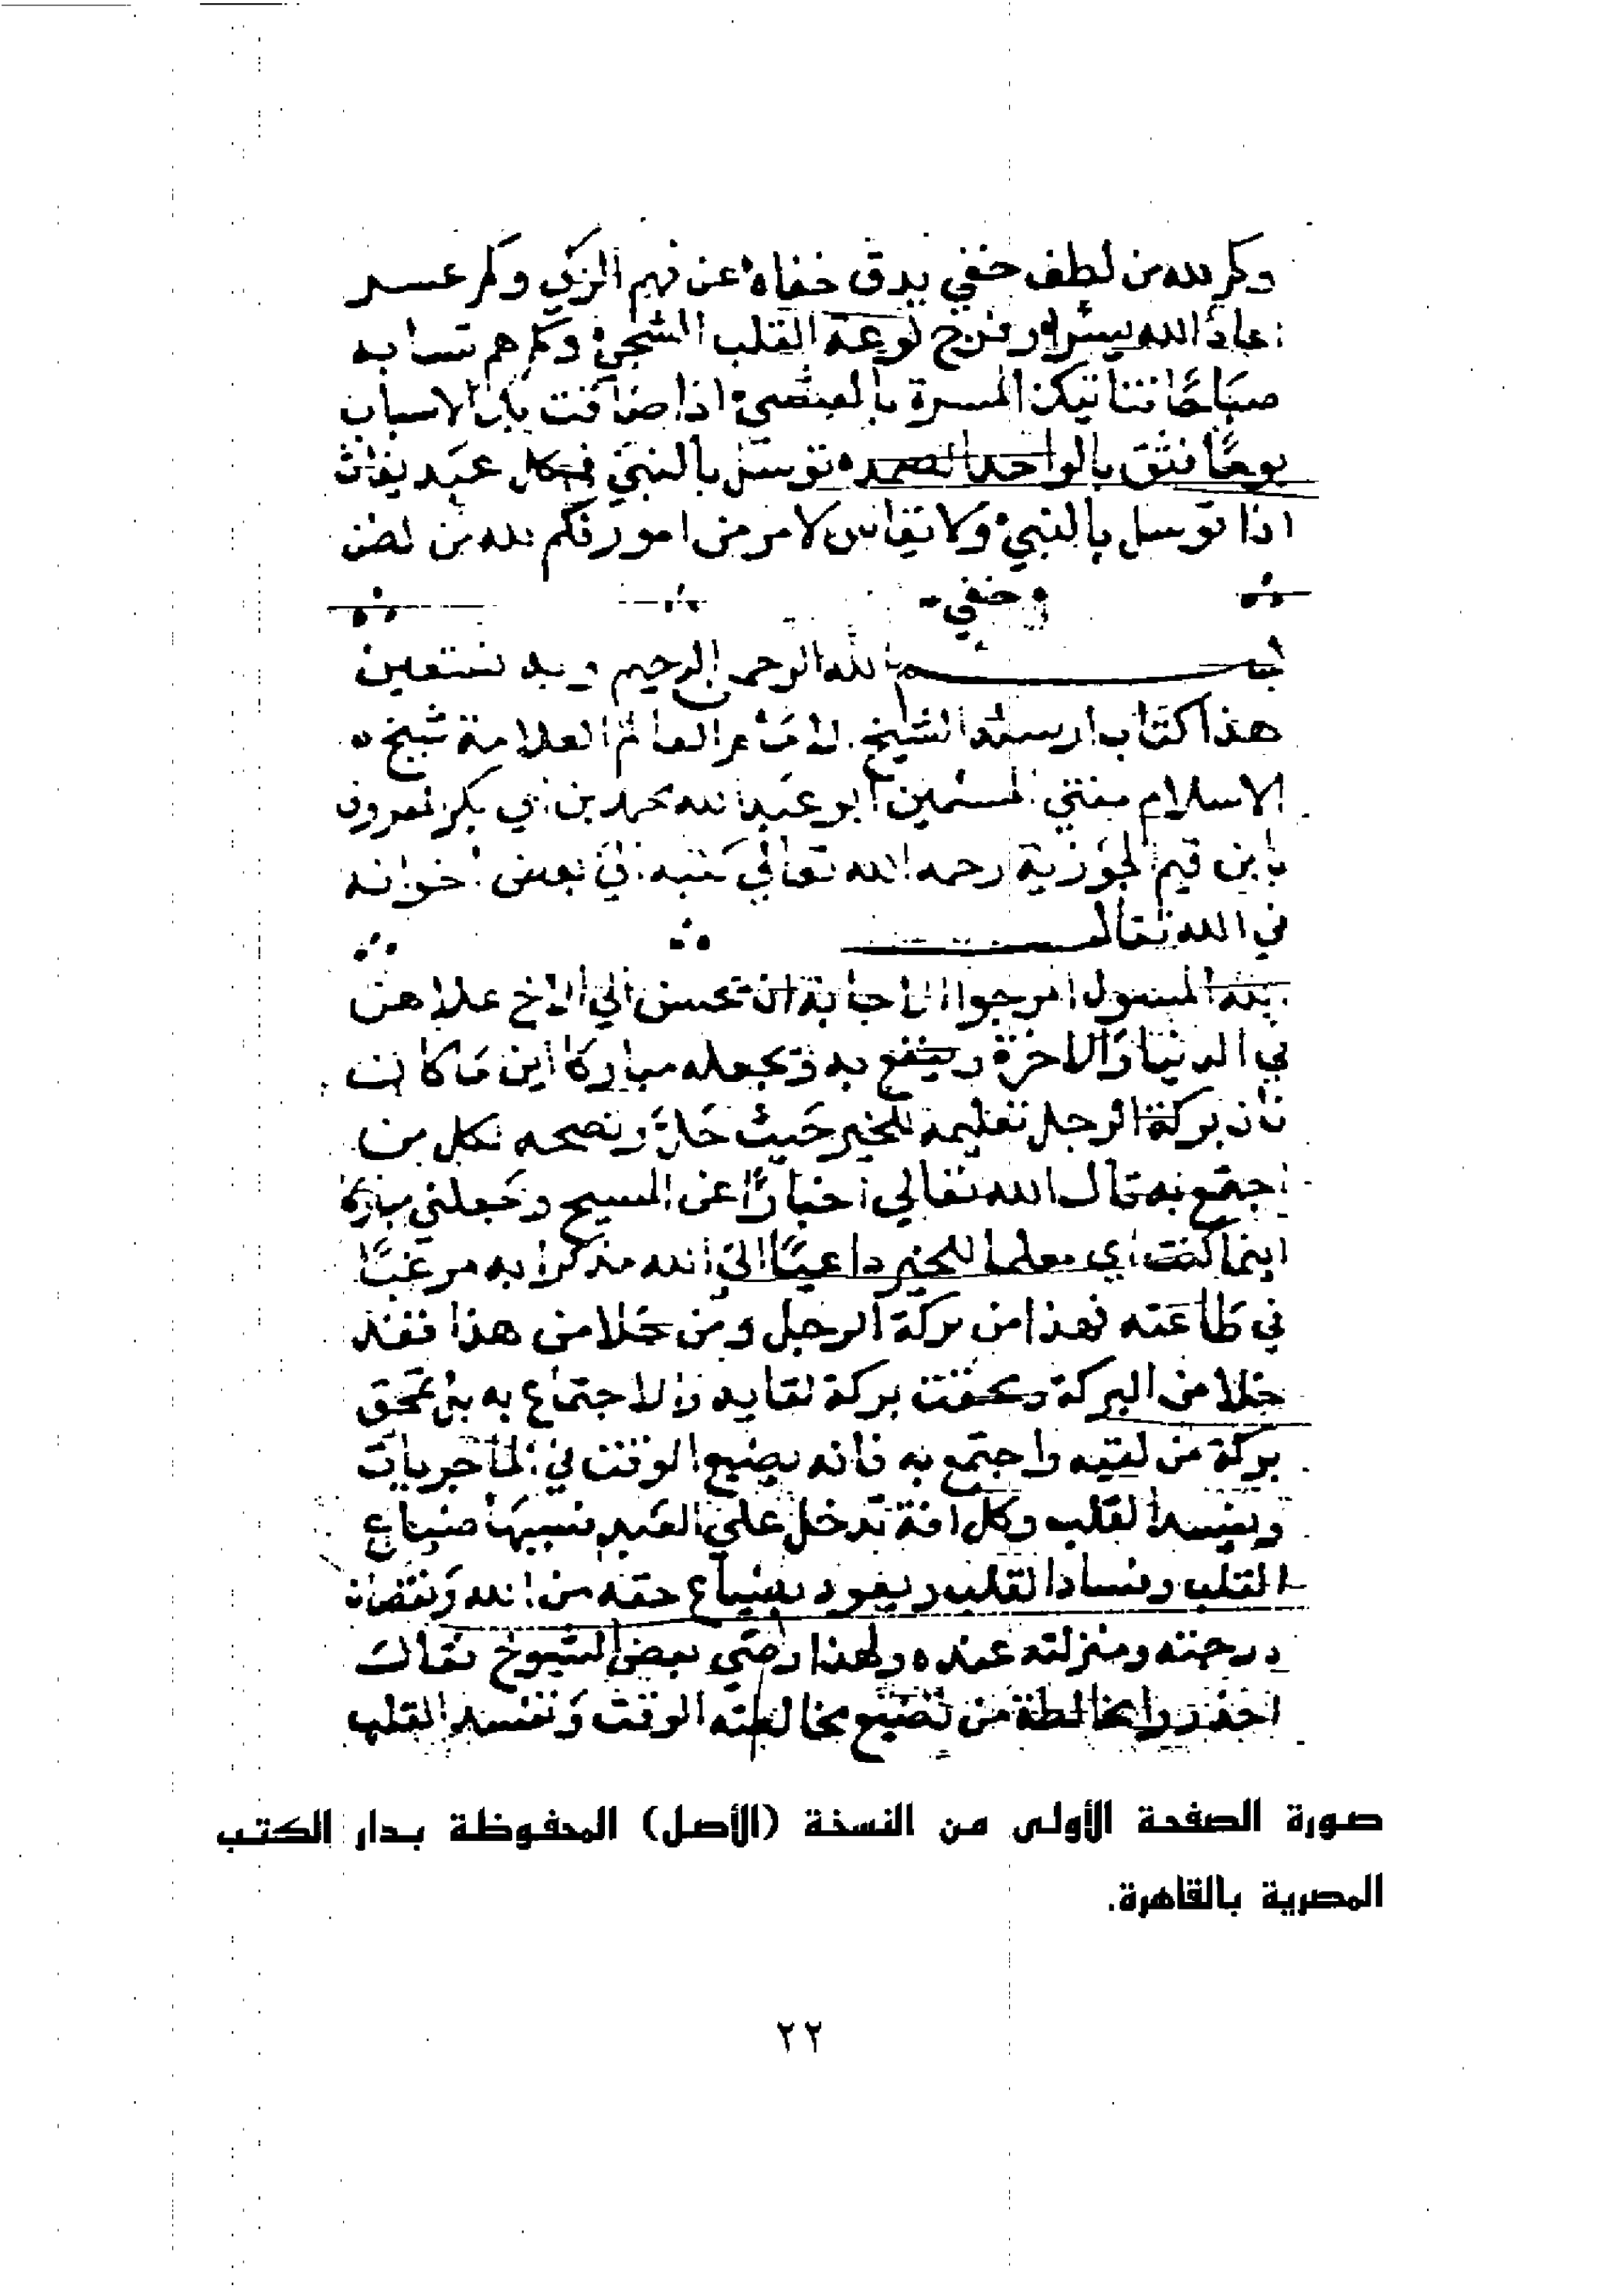 وكم لله من لطف خفي يدق خفاه عن فهم الزكي وكم عسر
اعاد الله يسرا وفرج لوعة القلب الشجي وكم هم تسا به
صباحًا فتاتيك المسرة بالعشي اذا ضاقت بك الاسباب
يومًا فثق بالواحد الصمد توسل بالنبي فكل عبد يغاث
اذا توسل بالنبي ولا تيا س لامر من امور فكم لله من لطف
خفي
بسم الله الرحمن الرحيم وبه نستعين
هذا كتاب ارسله الشيخ الامام العالم العلامة شيخ
الاسلام مفتي المسلمين ابو عبد الله محمد بن ابي بكر المعروف
بابن قيم الجوزية رحمه الله تعالي كتبه الي بعض اخوانه
في الله تعالى
الله المسول المرجوا الاجابة ان يحسن الي الاخ علا
في الدنيا والاخرة وينفع به ويجعله مباركا اين ما كان
فان بركة الرجل تعليمه للخير حيث حل ونصحه لكل من
اجتمع به قال الله تعالي اخبارًا عن المسيح وجعلني مباركا
اينما كنت اي معلما للخير داعيًا الي الله مذكرا به مرغبًا
في طاعته فهذا من بركة الرجل ومن خلا من هذا فقد
خلا من البركة ومحقت بركة لقايه والاجتماع به بل تمحق
بركة من لقيه واجتمع به فانه يضيع الوقت في الماجريات
ويفسد القلب وكل افة تدخل علي العبد فسببها ضياع
القلب وفساد القلب ويعود بضياع حقه من الله ونقصان
درجته ومنزلته عنده ولهذا وصي بعض الشيوخ فقال
احذروا مخالطة من تضيع مخالطته الوقت وتفسد القلب
صورة الصفحة الأولى من النسخة (الأصل) المحفوظة بدار الكتب
المصرية بالقاهرة.
٢٢